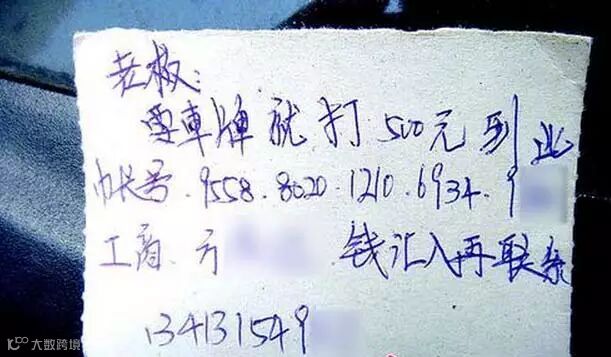 老板：
要車牌就打500元到此
帐号.9558.8020.1210.6934.9
工商 方 钱汇入再联系
134131549
大数跨境